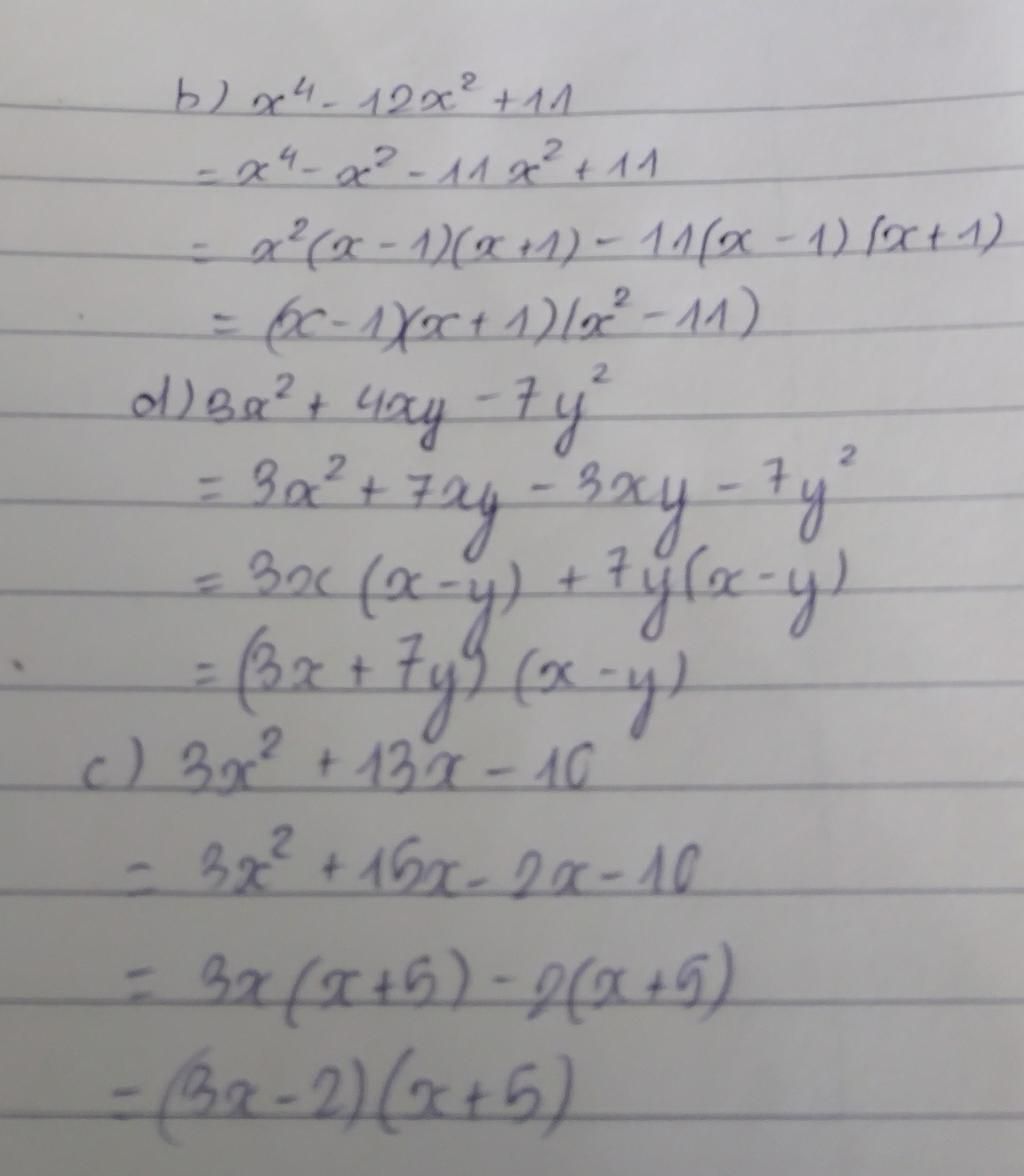 b) x⁴ - 12x² + 11
= x⁴ - x² - 11x² + 11
= x²(x - 1)(x + 1) - 11(x - 1)(x + 1)
= (x - 1)(x + 1)(x² - 11)
d) 3x² + 4xy - 7y²
= 3x² + 7xy - 3xy - 7y²
= 3x(x - y) + 7y(x - y)
= (3x + 7y)(x - y)
c) 3x² + 13x - 10
= 3x² + 15x - 2x - 10
= 3x(x + 5) - 2(x + 5)
= (3x - 2)(x + 5)